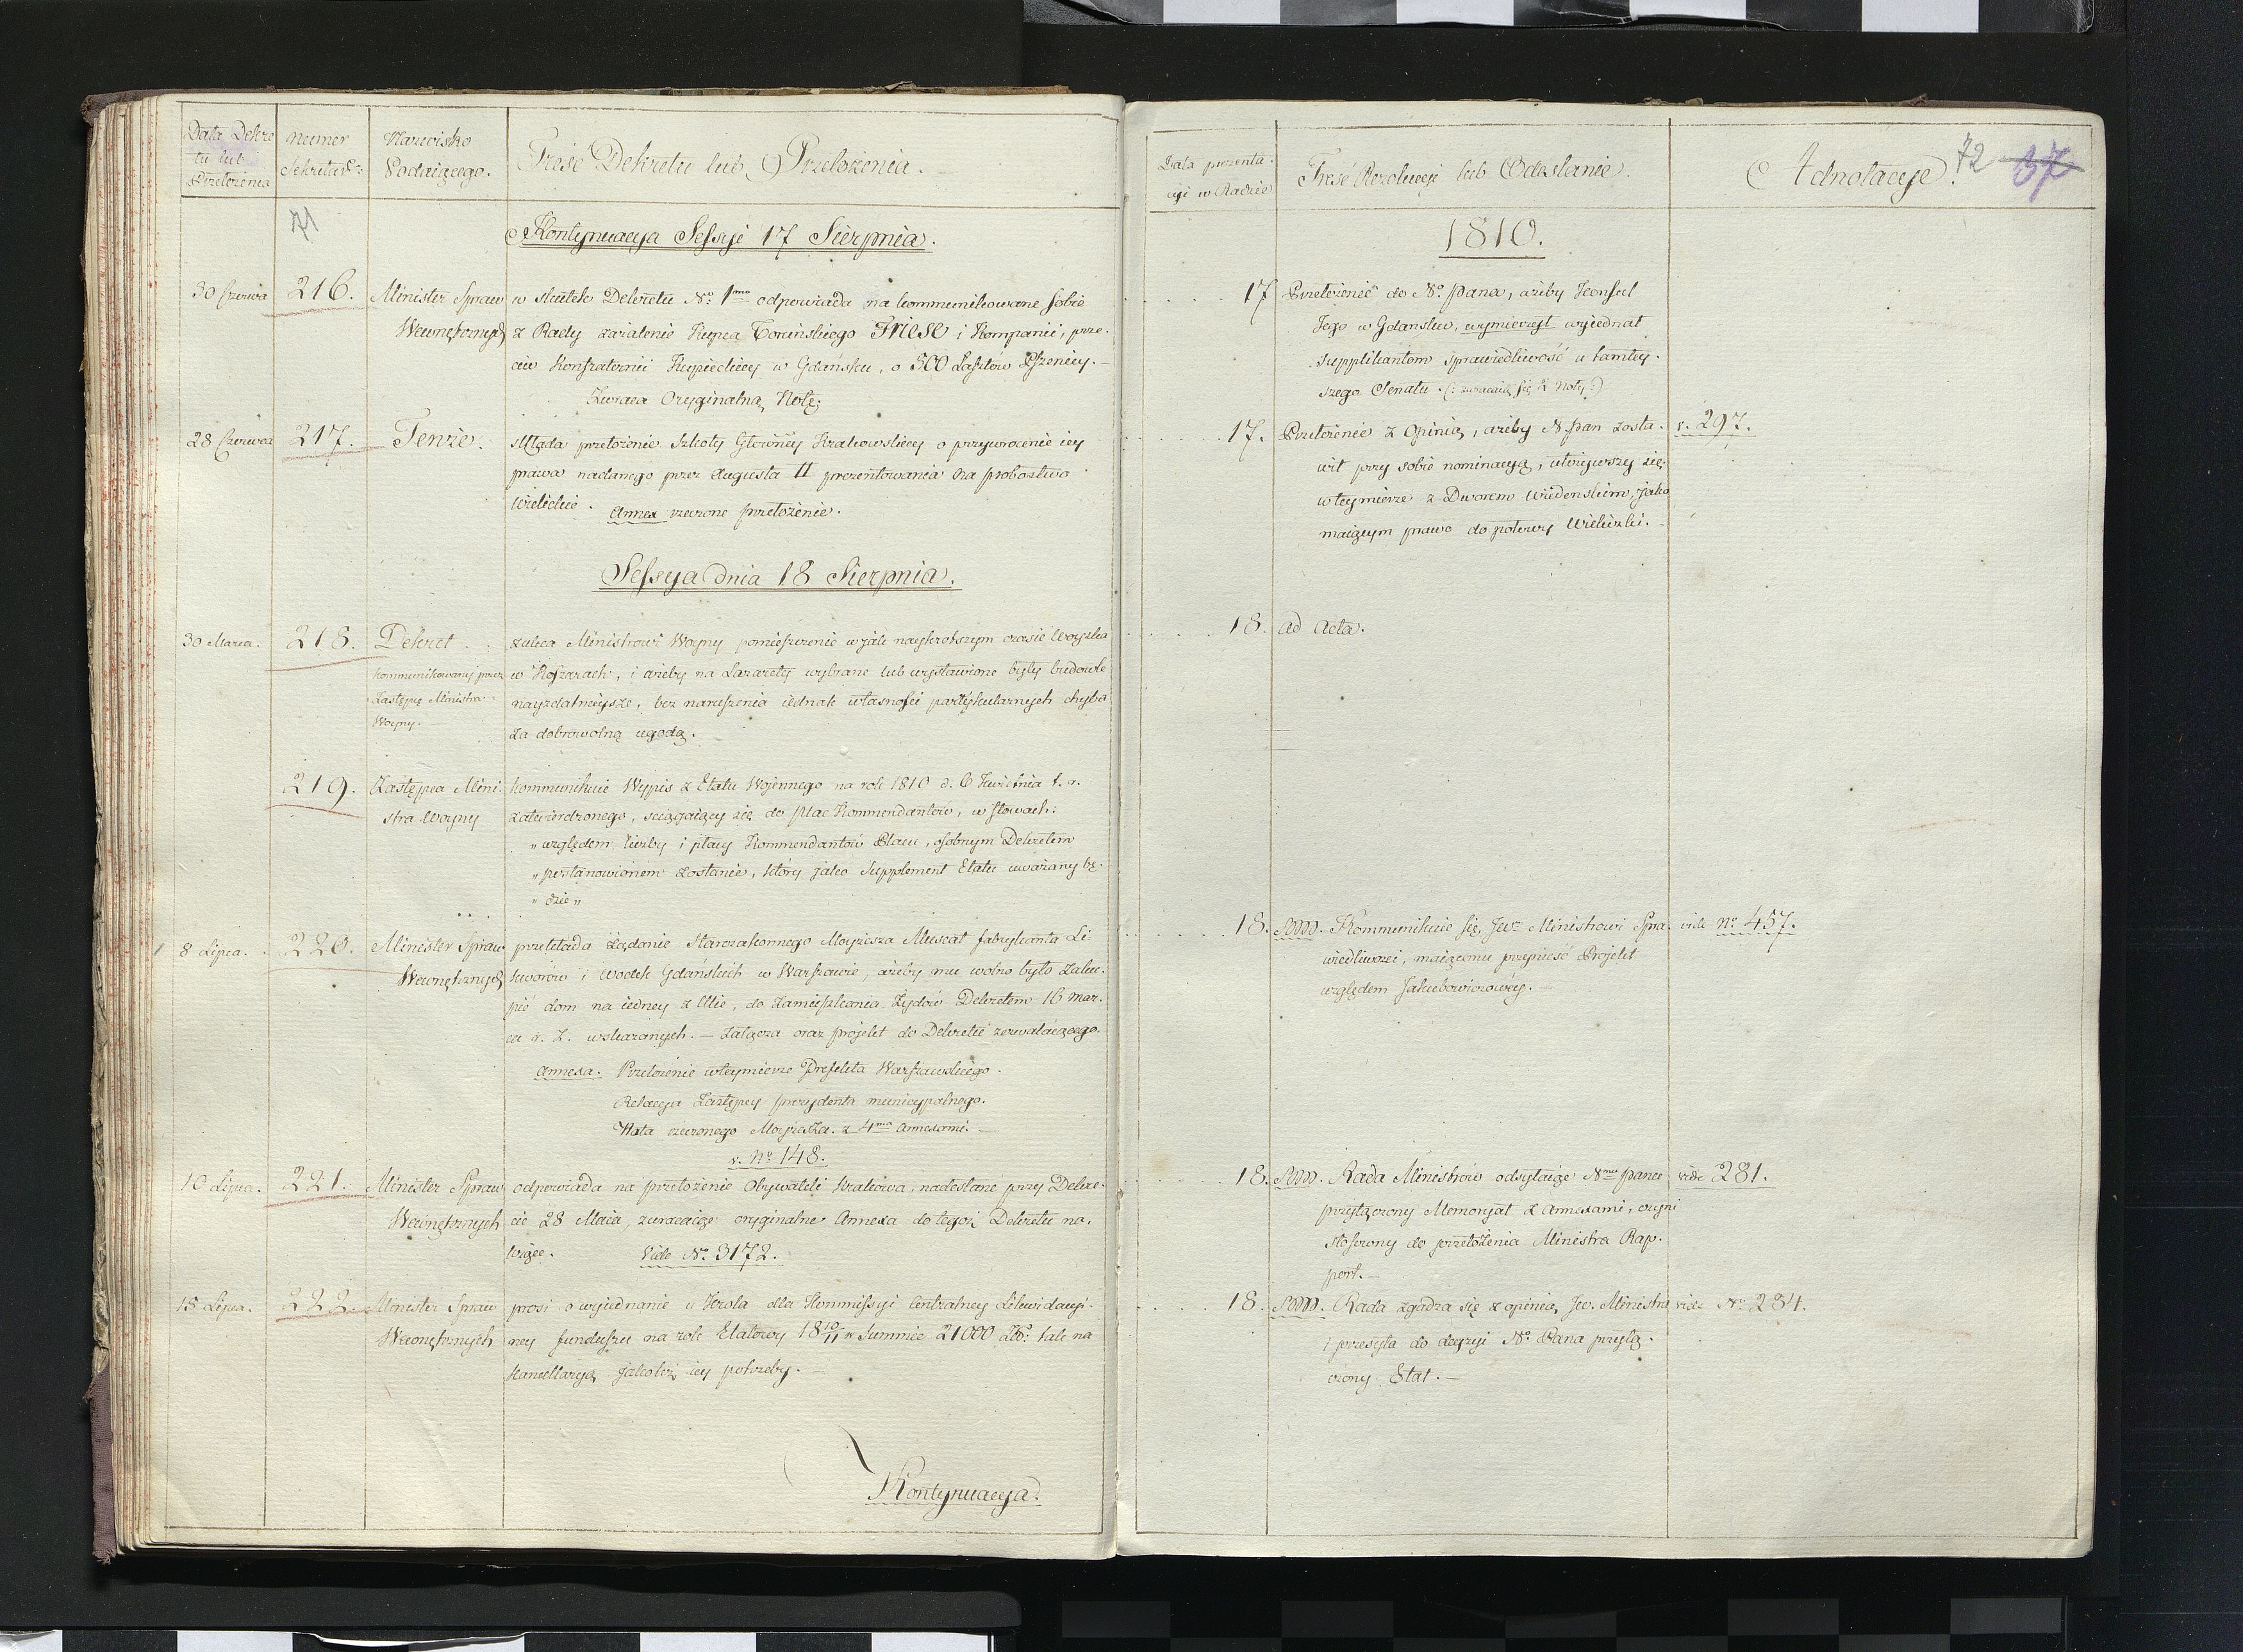 Data Dekre
tu lub
Przełożenia
Numer
Sekretar.
Nazwisko
Podaiącego.
Treść Dekretu lub Przełożenia.
71
Kontynuacya Sessyi 17 Sierpnia.
30 Czerwca
216.
Minister Spraw
Wewnętrznych
w skutek Dekretu No. 1mo odpowiada na kommunikowane sobie
z Rady zażalenie Kupca Toruńskiego Friese i Kompanii, prze-
ciw Konfraternii Kupieckiey w Gdańsku, o 300 Łasztów Pszenicy.—
Zwraca Oryginalną Notę.
28 Czerwca
217.
Tenże.
składa przełożenie Szkoły Główney Krakowskiey o przywrócenie iey
prawa nadanego przez Augusta II prezentowania na probostwo
Wielickie.
Annex rzeczone przełożenie.
Sessya dnia 18 Sierpnia.
30 Marca.
218.
Dekret
kommunikowany przez
Zastępcę Ministra
Woyny.—
zaleca Ministrowi Woyny pomieszczenie w jak naykrótszym czasie Woyska
w Koszarach, i ażeby na Lazarety wybrane lub wystawione były budowle
nayzdatnieysze, bez naruszenia iednak własności partykularnych chyba
za dobrowolną ugodą.
219.
Zastępca Mini-
stra Woyny
kommunikuie Wypis z Etatu Wojennego na rok 1810 d. 6 Kwietnia t. r.
zatwierdzonego, ściągaiący się do płac Kommendantów, w słowach:
„względem liczby i płacy Kommendantów Placu, osobnym Dekretem
„postanowionem zostanie, który jako Supplement Etatu uważany bę-
„dzie„
8 Lipca.
220.
Minister Spraw
Wewnętrznych
przekłada żądanie Starozakonnego Moyżesza Muscat fabrykanta Li-
kworów i wódek Gdańskich w Warszawie, ażeby mu wolno było zaku-
pić dom na iedney z Ulic, do Zamieszkania Żydów Dekretem 16 Mar-
ca r. z. wskazanych.— Załącza oraz projekt do Dekretu zezwalaiącego.
Annexa. Przełożenie w teymierze Prefekta Warszawskiego.
Relacya Zastępcy prezydenta municypalnego.
Nota rzeczonego Moyżesza. z 4ma Annexami.—
v. No 148.
10 Lipca.
221.
Minister Spraw
Wewnętrznych
odpowiada na przełożenie Obywateli Krakowa, nadesłane przy Dekre-
cie 28 Maia, zwracaiąc oryginalne Annexa do tegoż Dekretu na-
leżące. Vide No. 3172.
15 Lipca.
222.
Minister Spraw
Wewnętrznych
prosi o wyiednanie u Króla dla Kommissyi Centralney Likwidacyi-
ney funduszu na rok Etatowy 18 10/11 w Summie 21000 Złp: tak na
Kancellaryą jakoteż iey potrzeby.—
Kontynuacya.
Data prezenta-
cyi w Radzie
Treść Rezolucyi lub Odesłanie.
Adnotacye.
72
37
1810.
17
Przełożenie do No. Pana, ażeby Konsul
Jego w Gdańsku, wymierzył wyiednał
supplikantom sprawiedliwość u tamtey-
szego Senatu. (: zwracaią się 2 Noty:)
17.
Przełożenie z Opinią, ażeby N. Pan zosta-
wił przy sobie nominacyą, ułożywszy się
w teymierze z Dworem Wiedeńskim, jako
maiącym prawo do połowy Wieliczki.—
v. 297.
18.
ad Acta.
18.
Kommunikuie się Jw. Ministrowi Spra-
wiedliwości, maiącemu przynieść Projekt
względem Jakubowiczówey.—
vide No. 457.
18.
Rada Ministrów odsyłaiąc Nmu Panu
przyłączony Memoryał z Annexami, czyni
stosowny do przełożenia Ministra Rap-
port.—
vide 281.
18.
Rada zgadza się z opinią Jw. Ministra
i przesyła do decyzyi No. Pana przyłą-
czony Etat.—
vide No 234.